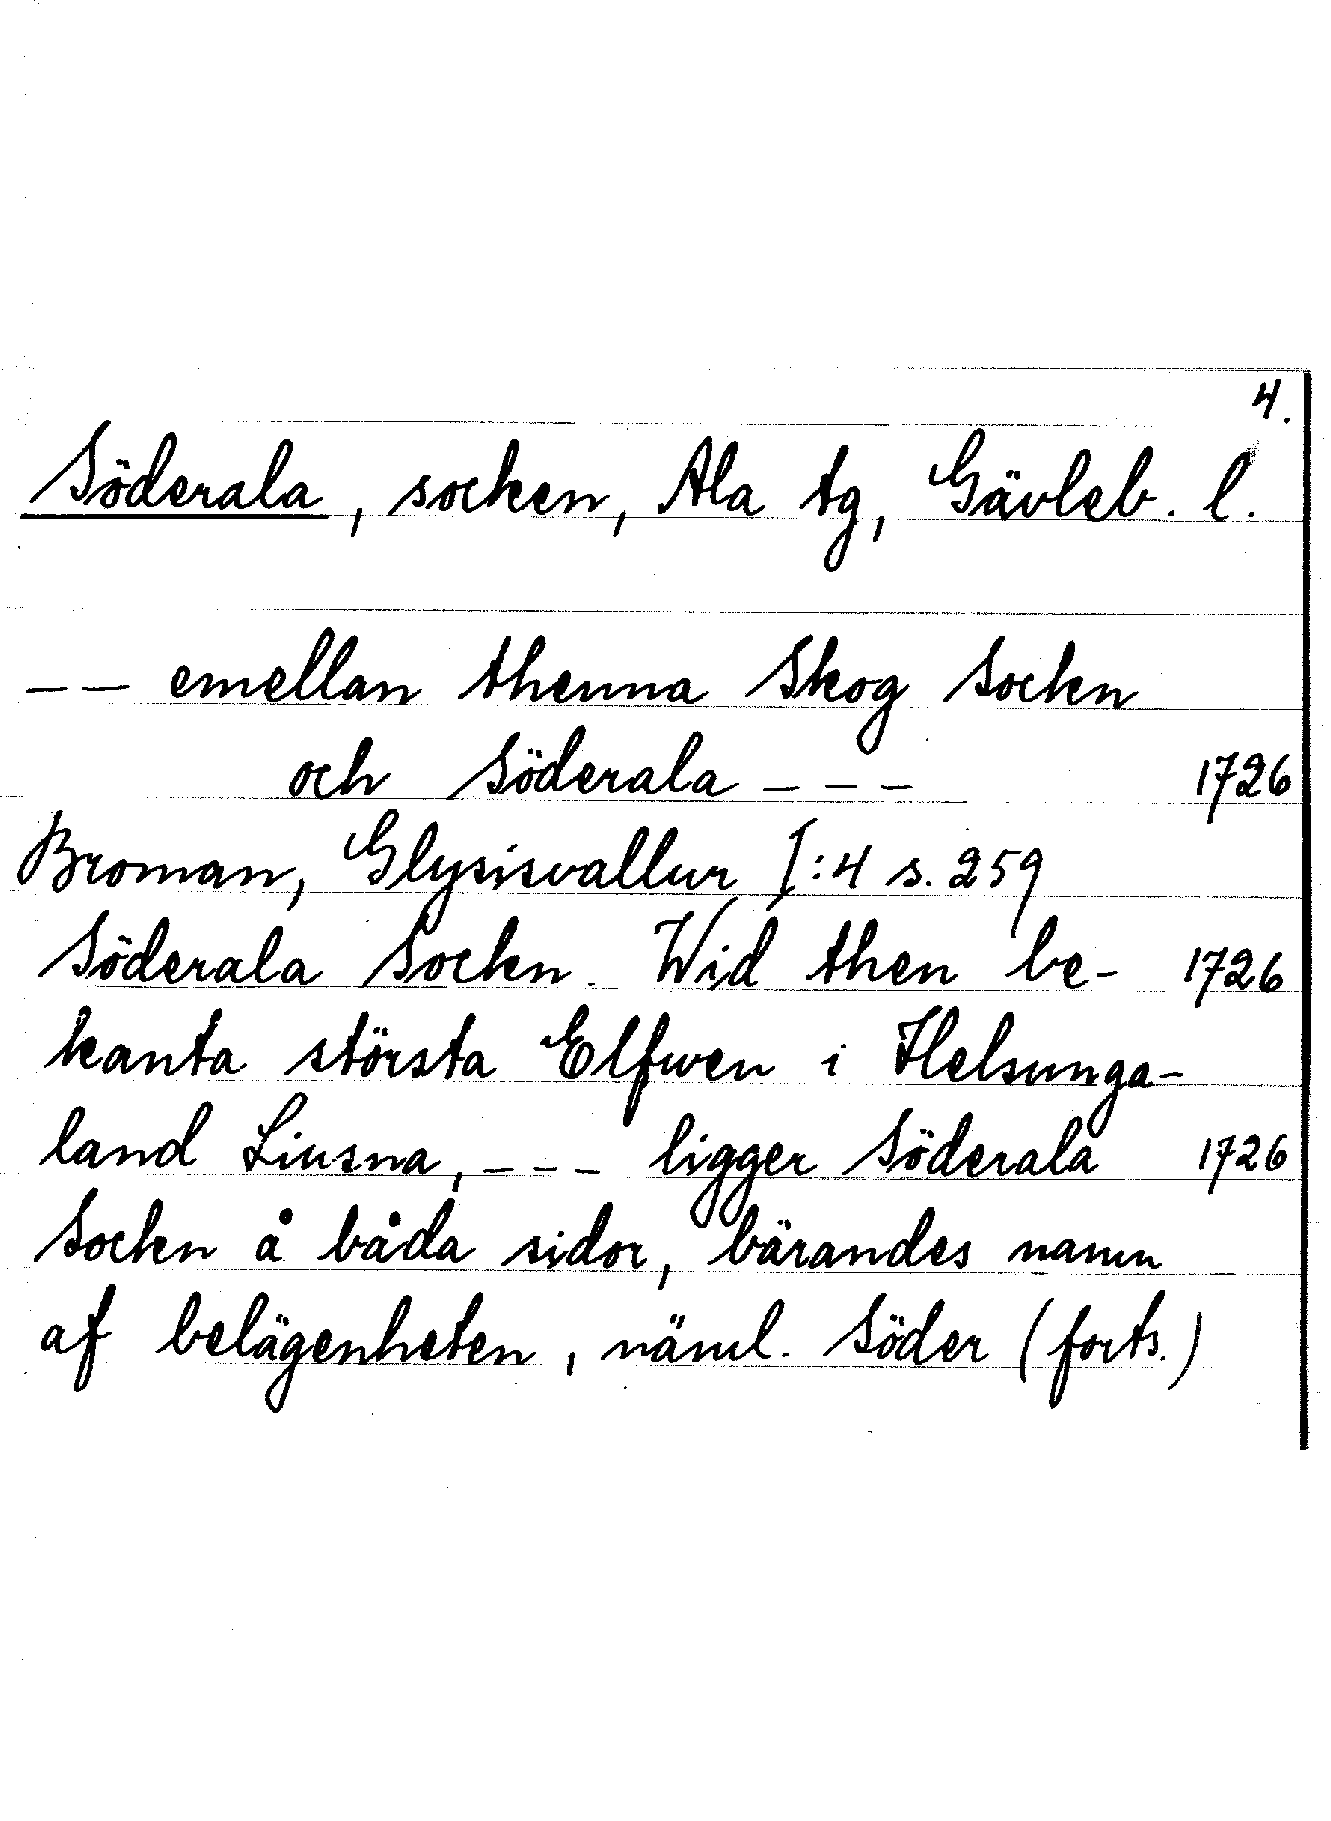 4.
Söderala, socken, Ala tg, Gävleb. l.
-- emellan thenna Skog Sockn
och Söderala --- 1726
Broman, Glysisvallur I:4 s. 259
Söderala Sockn. Wid then be- 1726
kanta största Elfwen i Helsunga-
land Liusna, --- ligger Söderala 1726
Sockn å båda sidor, bärandes namn
af belägenheten, näml. Söder (forts.)